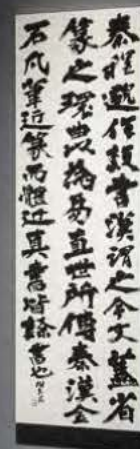 秦程邈作隸書漢謂之今文蓋省
篆之環曲以為易直世所傳秦漢金
石凡筆近篆而體近真者皆隸書也